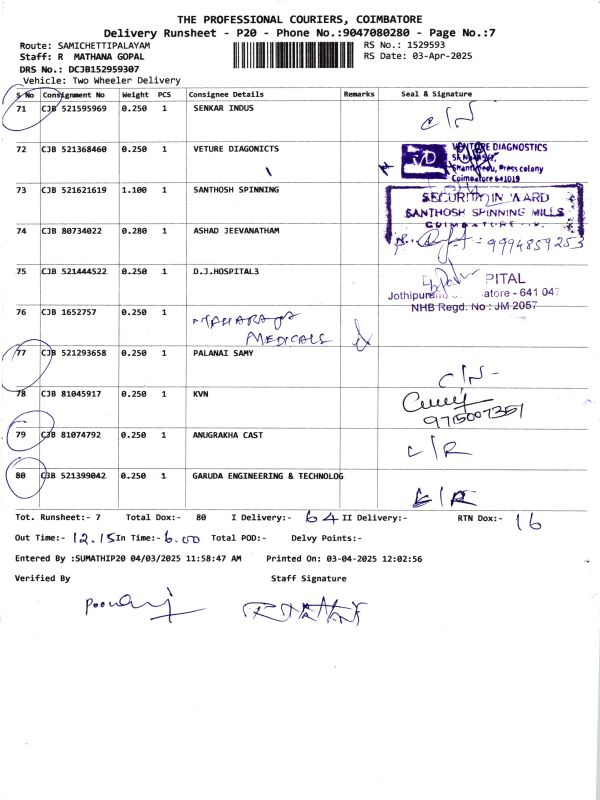 THE PROFESSIONAL COURIERS, COIMBATORE
Delivery Runsheet - P20 - Phone No.:9047080280 - Page No.:7
Route: SAMICHETTIPALAYAM
RS No.: 1529593
Staff: R MATHANA GOPAL
RS Date: 03-Apr-2025
DRS No.: DCJB152959307
Vehicle: Two Wheeler Delivery
S No Consignment No Weight PCS Consignee Details Remarks Seal & Signature
71 CJB 521595969 0.250 1 SENKAR INDUS C/N
72 CJB 521368460 0.250 1 VETURE DIAGONICTS
VD VENTURE DIAGNOSTICS
Press colony
Coimbatore 641019
73 CJB 521621619 1.100 1 SANTHOSH SPINNING
SECURITY IN WARD
SANTHOSH SPINNING MILLS
74 CJB 80734022 0.280 1 ASHAD JEEVANATHAM
9994859253
75 CJB 521444522 0.250 1 D.J.HOSPITAL3
PITAL
atore - 641 047
NHB Regd. No : JM 2057
76 CJB 1652757 0.250 1 MAHARAJA
MEDICALS
77 CJB 521293658 0.250 1 PALANAI SAMY C/N-
78 CJB 81045917 0.250 1 KVN
9715007351
79 CJB 81074792 0.250 1 ANUGRAKHA CAST C/R
80 CJB 521399042 0.250 1 GARUDA ENGINEERING & TECHNOLOG C/R
Tot. Runsheet:- 7 Total Dox:- 80 I Delivery:- 64 II Delivery:- RTN Dox:- 16
Out Time:- 12.15 In Time:- 6.00 Total POD:- Delvy Points:-
Entered By :SUMATHIP20 04/03/2025 11:58:47 AM Printed On: 03-04-2025 12:02:56
Verified By Staff Signature